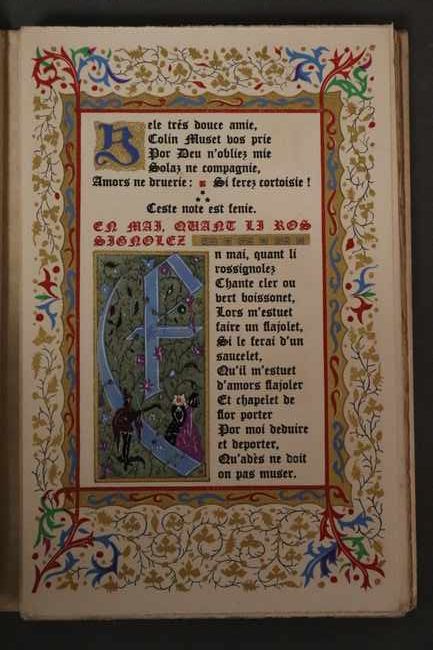 Bele trés douce amie,
Colin Muset vos prie
Por Deu n'obliez mie
Solaz ne compagnie,
Amors ne druerie : Si ferez cortoisie !
Ceste note est fenie.
EN MAI, QUANT LI ROS
SIGNOLEZ
En mai, quant li
rossignolez
Chante cler ou
vert boissonet,
Lors m'estuet
faire un flajolet,
Si le ferai d'un
saucelet,
Qu'il m'estuet
d'amors flajoler
Et chapelet de
flor porter
Por moi deduire
et deporter,
Qu'adès ne doit
on pas muser.